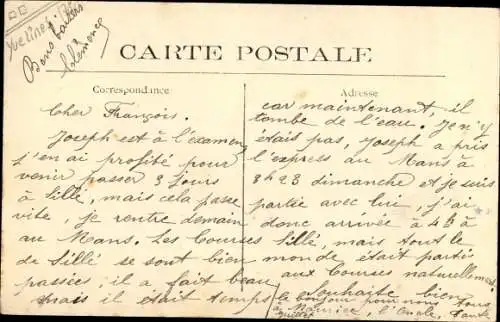 Yvelines
Bons baisers
Clémence
CARTE POSTALE
Correspondance
Adresse
Cher François.
Joseph est à l'examen,
j'en ai profité pour
venir passer 3 jours
à Sillé, mais cela passe
vite, je rentre demain
au Mans. Les Courses
de Sillé se sont bien
passées, il a fait beau
mais il était temps
car maintenant, il
tombe de l'eau. Je n'y
étais pas, Joseph a pris
l'express au Mans à
3h23 dimanche et je suis
partie avec lui, j'ai
donc arrivée à 4h à
Sillé, mais tout le
monde était partis
aux Courses naturellement.
Souhaite bien
le bonjour pour nous tous
à Maurice, l'Oncle, Tante